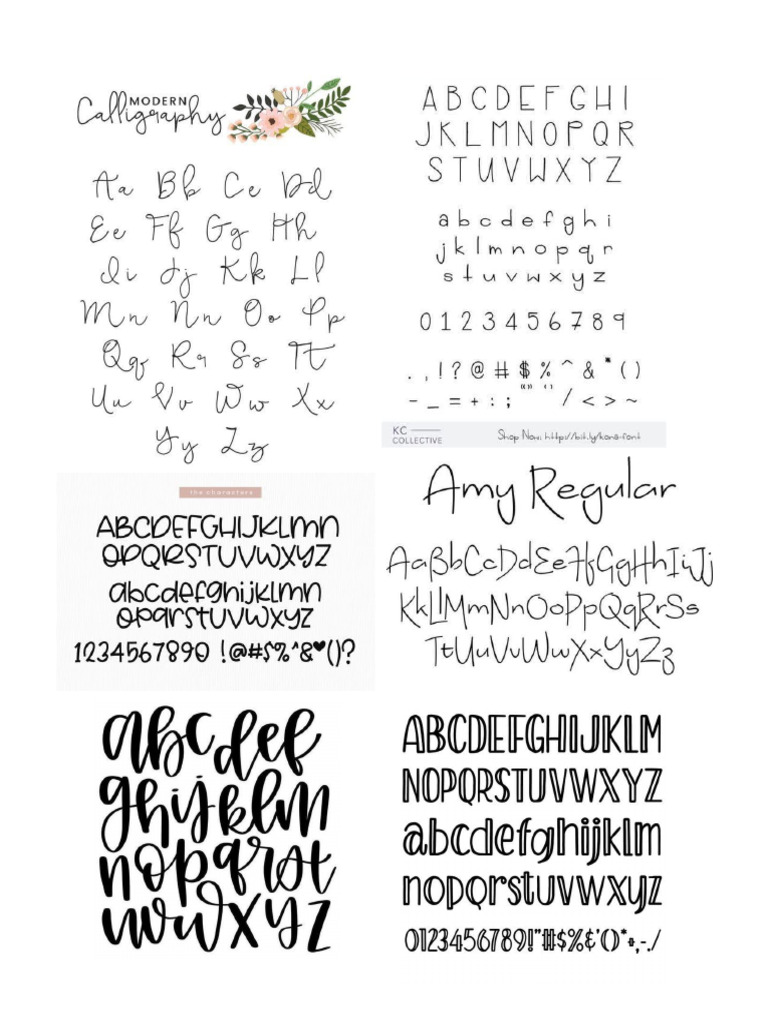 MODERN
Calligraphy
Aa Bb Cc Dd
Ee Ff Gg Hh
Ii Jj Kk Ll
Mm Nn Oo Pp
Qq Rr Ss Tt
Uu Vv Ww Xx
Yy Zz
ABCDEFGHI
JKLMNOPQR
STUVWXYZ
abcdefghi
jklmnopqr
stuvwxyz
0123456789
. , ! ? @ # $ % ^ & * ( )
- _ = + : ; “” ‘’ / < > ~
KC
COLLECTIVE
Shop Now: http://bit.ly/kona-font
the characters
ABCDEFGHIJKLMN
OPQRSTUVWXYZ
abcdefghijklmn
opqrstuvwxyz
1234567890 !@#$%^&♥()?
Amy Regular
AaBbCcDdEeFfGgHhIiJj
KkLlMmNnOoPpQqRrSs
TtUuVvWwXxYyZz
abcdef
ghijklm
nopqrst
uvwxyz
ABCDEFGHIJKLM
NOPQRSTUVWXYZ
abcdefghijklm
nopqrstuvwxyz
0123456789!"#$%&'()*+,-./